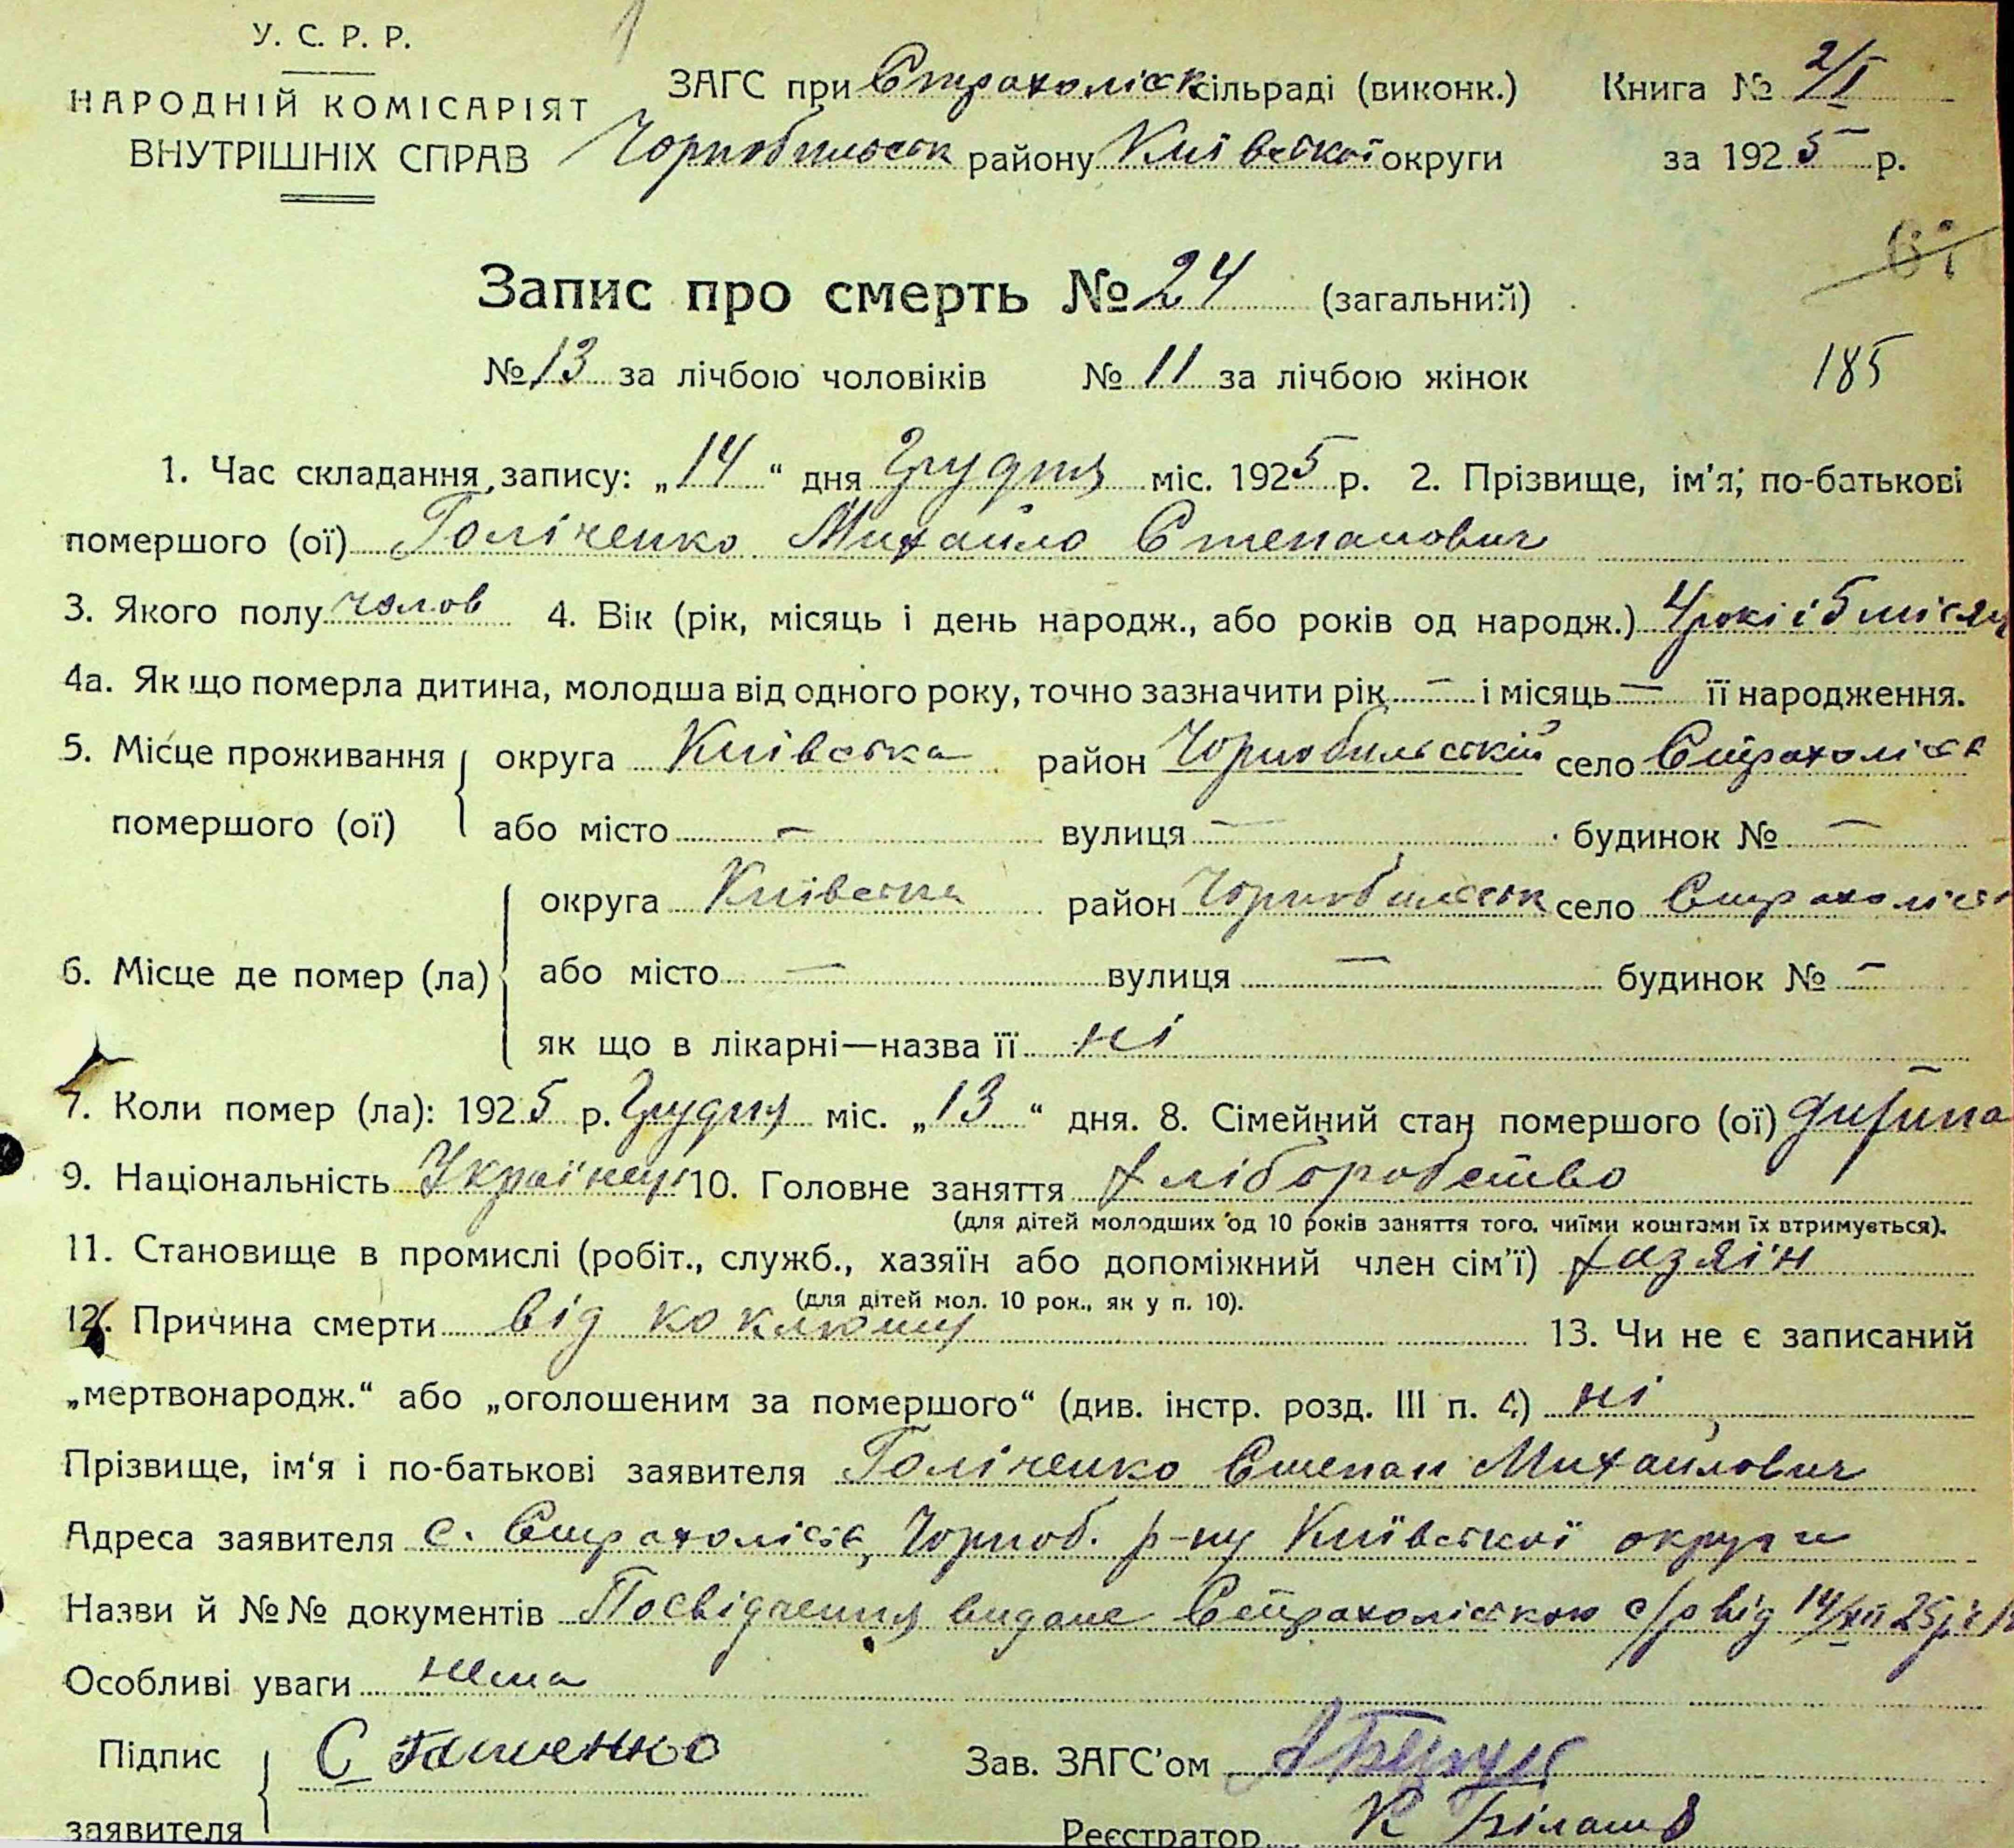 У. С. Р. Р.
НАРОДНІЙ КОМІСАРІЯТ
ВНУТРІШНІХ СПРАВ
ЗАГС при Страхоліськ сільраді (виконк.)
Чорнобильськ району Київської округи
Книга № 2/I
за 1925 р.
Запис про смерть № 24 (загальний)
№ 13 за лічбою чоловіків № 11 за лічбою жінок
185
1. Час складання запису: „14“ дня Грудня міс. 1925 р. 2. Прізвище, ім'я, по-батькові
помершого (ої) Голіченко Михайло Степанович
3. Якого полу чолов 4. Вік (рік, місяць і день народж., або років од народж.) 4 рокі і 5 місяц
4а. Як що померла дитина, молодша від одного року, точно зазначити рік — і місяць — її народження.
5. Місце проживання помершого (ої)
округа Київська район Чорнобильський село Страхолісся
або місто — вулиця — будинок № —
6. Місце де помер (ла)
округа Київська район Чорнобильськ село Страхоліс
або місто — вулиця — будинок № —
як що в лікарні—назва її ні
7. Коли помер (ла): 1925 р. Грудня міс. „13“ дня. 8. Сімейний стан помершого (ої) дитина
9. Національність Українець 10. Головне заняття хліборобство
(для дітей молодших од 10 років заняття того, чиїми коштами їх втримується).
11. Становище в промислі (робіт., служб., хазяїн або допоміжний член сім'ї) хазяїн
(для дітей мол. 10 рок., як у п. 10).
12. Причина смерти від коклюшу 13. Чи не є записаний
„мертвонародж.“ або „оголошеним за помершого“ (див. інстр. розд. III п. 4) ні
Прізвище, ім'я і по-батькові заявителя Голіченко Степан Михайлович
Адреса заявителя с. Страхолісся, Чорноб. р-ну Київської округи
Назви й №№ документів Посвідчення видане Страхоліською с/р від 14/XII 25р
Особливі уваги нема
Підпис заявителя С
Зав. ЗАГС'ом
Реєстратор К Білаш